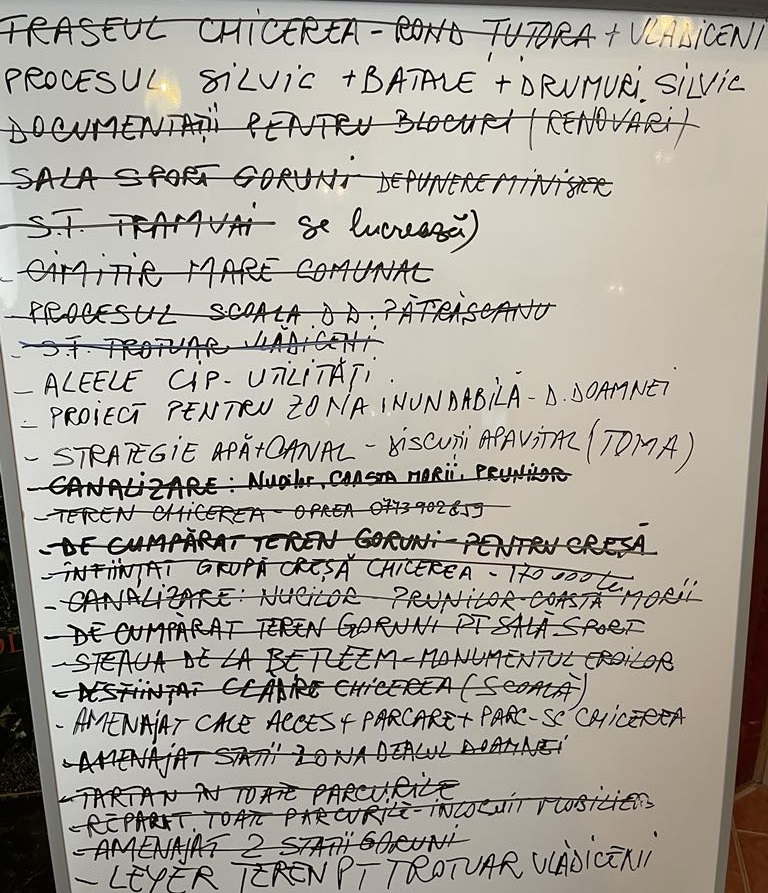 TRASEUL CHICEREA - ROND ȚUȚORA + VLĂDICENI
PROCESUL SILVIC + BATALE + DRUMURI SILVIC
DOCUMENTAȚII PENTRU BLOCURI (RENOVARI)
SALA SPORT GORUNI DEPUNERE MINISTER
S.T. TRAMVAI se lucrează)
- CIMITIR MARE COMUNAL
- PROCESUL SCOALA D.D. PĂTRĂȘCANU
- S.T. TROTUAR VLĂDICENI
- ALEELE CIP - UTILITĂȚI.
- PROIECT PENTRU ZONA INUNDABILĂ - D. DOAMNEI
- STRATEGIE APĂ + CANAL - DISCUȚII APAVITAL (TOMA)
- CANALIZARE: Nucilor, COASTA MORII, PRUNILOR
- TEREN CHICEREA - OPREA 0773902859
- DE CUMPĂRAT TEREN GORUNI - PENTRU CREȘĂ
- ÎNFIINȚAT GRUPĂ CREȘĂ CHICEREA - 170 000 Lei
- CANALIZARE: NUCILOR PRUNILOR - COASTA MORII
- DE CUMPARAT TEREN GORUNI PT SALĂ SPORT
- STEAUA DE LA BETLEEM - MONUMENTUL EROILOR
- DESFIINȚAT CLĂDIRE CHICEREA (SCOALĂ)
- AMENAJAT CALE ACCES + PARCARE + PARC - SC CHICEREA
- AMENAJAT STAȚII ZONA DEALUL DOAMNEI
- TARTAN IN TOATE PARCURILE
- REPARAT TOATE PARCURILE - INLOCUIT MOBILIER
- AMENAJAT 2 STAȚII GORUNI
- LEYER TEREN PT TROTUAR VLĂDICENII